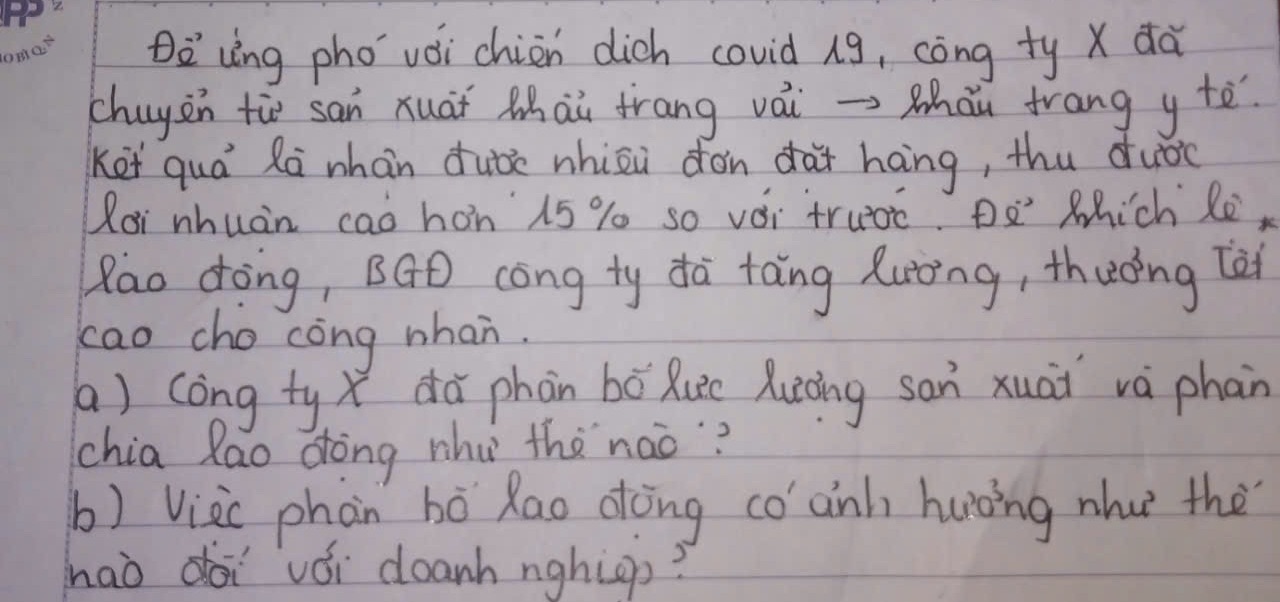 Để ứng phó với chiến dịch covid 19, công ty X đã
chuyển từ sản xuất khẩu trang vải → khẩu trang y tế.
Kết quả là nhận được nhiều đơn đặt hàng, thu được
lợi nhuận cao hơn 15% so với trước. Để khích lệ
lao động, BGĐ công ty đã tăng lương, thưởng Tết
cao cho công nhân.
a) Công ty X đã phân bổ lực lượng sản xuất và phân
chia lao động như thế nào?
b) Việc phân bổ lao động có ảnh hưởng như thế
nào đối với doanh nghiệp?